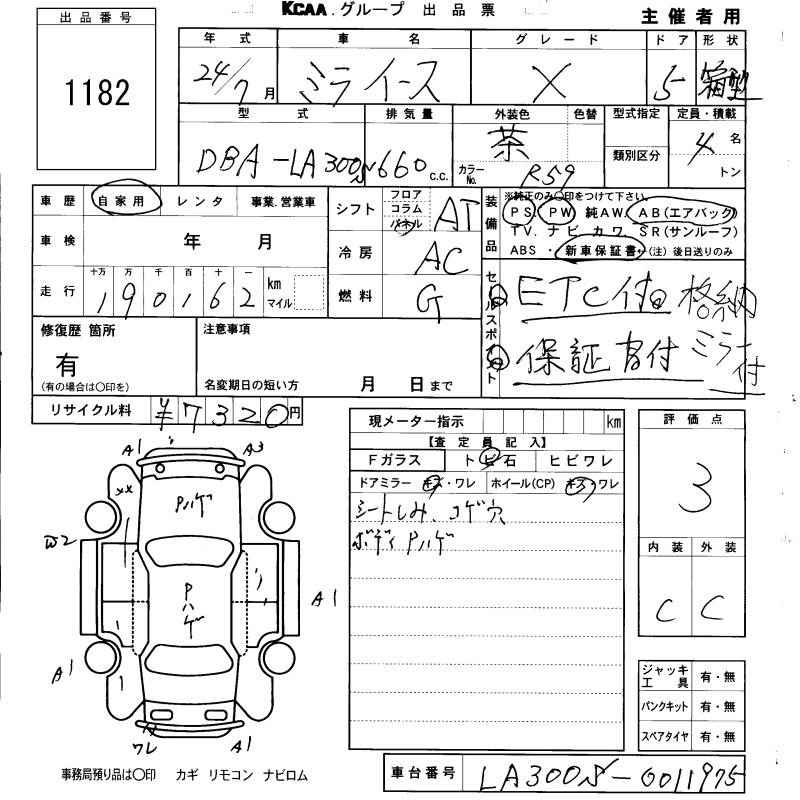 KCAA.グループ 出品票
主催者用
出品番号
1182
年式 車名 グレード ドア 形状
24/7月 ミラ イース X 5 箱型
型式 排気量 外装色 色替 型式指定 定員・積載
DBA-LA300S 660 c.c. 茶 類別区分 4名
カラーNo. R59 トン
車歴 自家用 レンタ 事業.営業車
車検 年 月
走行 十万 万 千 百 十 一
190162 km マイル
シフト フロア コラム パネル AT
冷房 AC
燃料 G
装備品 ※純正のみ〇印をつけて下さい。
PS. PW 純AW. AB(エアバック)
TV. ナビ カワ SR(サンルーフ)
ABS・新車保証書←(注)後日送りのみ
セールスポイント
ETC付 格納
保証書付 ミラー付
修復歴 箇所
有
(有の場合は〇印を)
注意事項
名変期日の短い方 月 日まで
リサイクル料 ¥7320円
現メーター指示 km
【査定員記入】
Fガラス トビ石 ヒビワレ
ドアミラー キズ・ワレ ホイール(CP) キズ・ワレ
シートしみ、コゲ穴
ボディ Pハゲ
評価点
3
内装 外装
C C
A1 A3
XX Pハゲ
W2
Pハゲ
A1
A1
ワレ A1
ジャッキ工具 有・無
パンクキット 有・無
スペアタイヤ 有・無
事務局預り品は〇印 カギ リモコン ナビロム
車台番号 LA300S-0011975